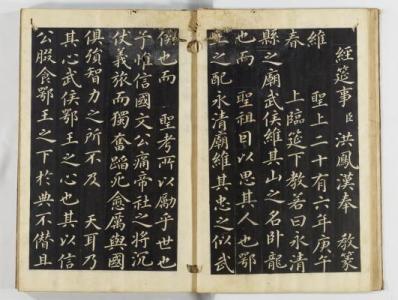 經筵事臣洪鳳漢奉 教篆
維 聖上二十有六年庚午
春 上臨筵下教若曰永清
縣之廟武侯維其山之名卧龍
也而 聖祖囙以思其人也鄂
王之配永清廟維其忠之似武
侯也而 聖考所以勵乎世也
予惟信國文公痛帝社之將沉
仗義旅而獨奮蹈死愈厲與國
俱殞智力之所不及 天耳乃
其心武侯鄂王之心也其以信
公腏食鄂王之下於典不僭且